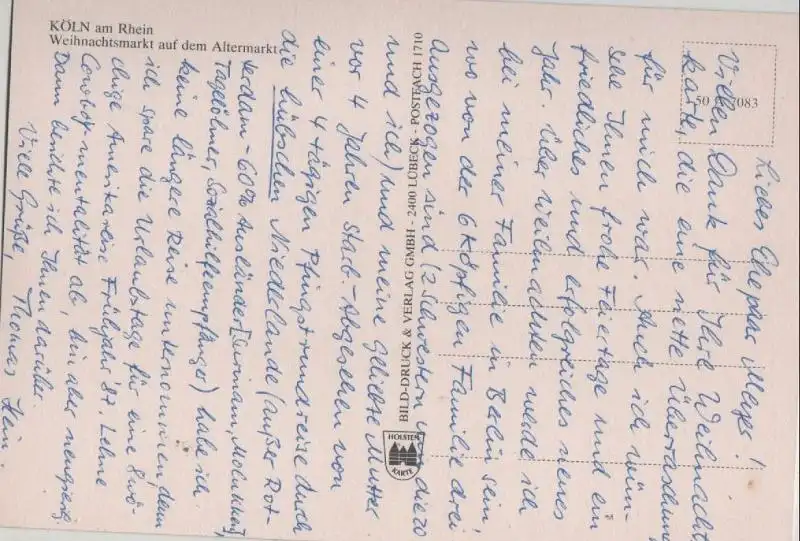 KÖLN am Rhein
Weihnachtsmarkt auf dem Altermarkt
50 7083
BILD-DRUCK & VERLAG GMBH - 2400 LÜBECK - POSTFACH 1710
HOLSTEN
KARTE
Liebes Ehepaar
Vielen Dank für Ihre Weihnachts
karte, die eine nette Überraschung
für mich war. Auch ich wün-
sche Ihnen frohe Feiertage und ein
friedliches und erfolgreiches neues
Jahr. Über Weihnachten werde ich
bei meiner Familie in Berlin sein,
wo von der 6 köpfigen Familie drei
ausgezogen sind (2 Schwestern
und ich) und meine geliebte Mutter
vor 4 Jahren starb. - Abgesehen von
einer 4 tägigen Pfingstrundreise durch
die hübschen Niederlande (außer Rot-
terdam - 60% Ausländer [Surinam, Molukken],
Tagelöhner, Sozialhilfeempfänger) habe ich
keine längere Reise unternommen, denn
ich spare die Urlaubstage für eine 3wö-
chige Amerikareise Frühjahr '87. Lehne
Cowboymentalität ab, bin aber neugierig.
Dann berichte ich Ihnen darüber.
Viele Grüße,
Thomas